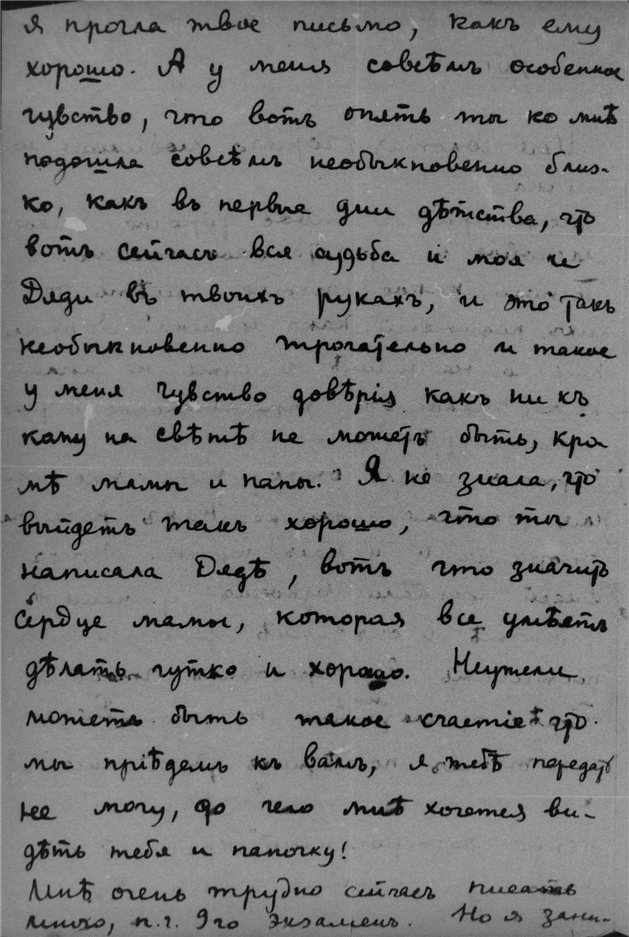 я прочла твое письмо, какъ ему
хорошо. А у меня совсѣмъ особенное
чувство, что вотъ опять ты ко мнѣ
подошла совсѣмъ необыкновенно близ-
ко, какъ въ первые дни дѣтства, что
вотъ сейчасъ вся судьба и моя и
Дяди въ твоихъ рукахъ, и это такъ
необыкновенно трогательно и такое
у меня чувство довѣрія какъ ни къ
кому на свѣтѣ не можетъ быть, кро
мѣ мамы и папы. Я не знала, что
выйдетъ такъ хорошо, что ты
написала Дядѣ, вотъ что значитъ
сердце мамы, которая все умѣетъ
дѣлать чутко и хорошо. Неужели
можетъ быть такое счастіе что
мы пріѣдемъ къ вамъ, я тебѣ передать
не могу, до чего мнѣ хочется ви-
дѣть тебя и папочку!
Мнѣ очень трудно сейчасъ писать
много, п.ч. 9го экзаменъ. Но я зани-